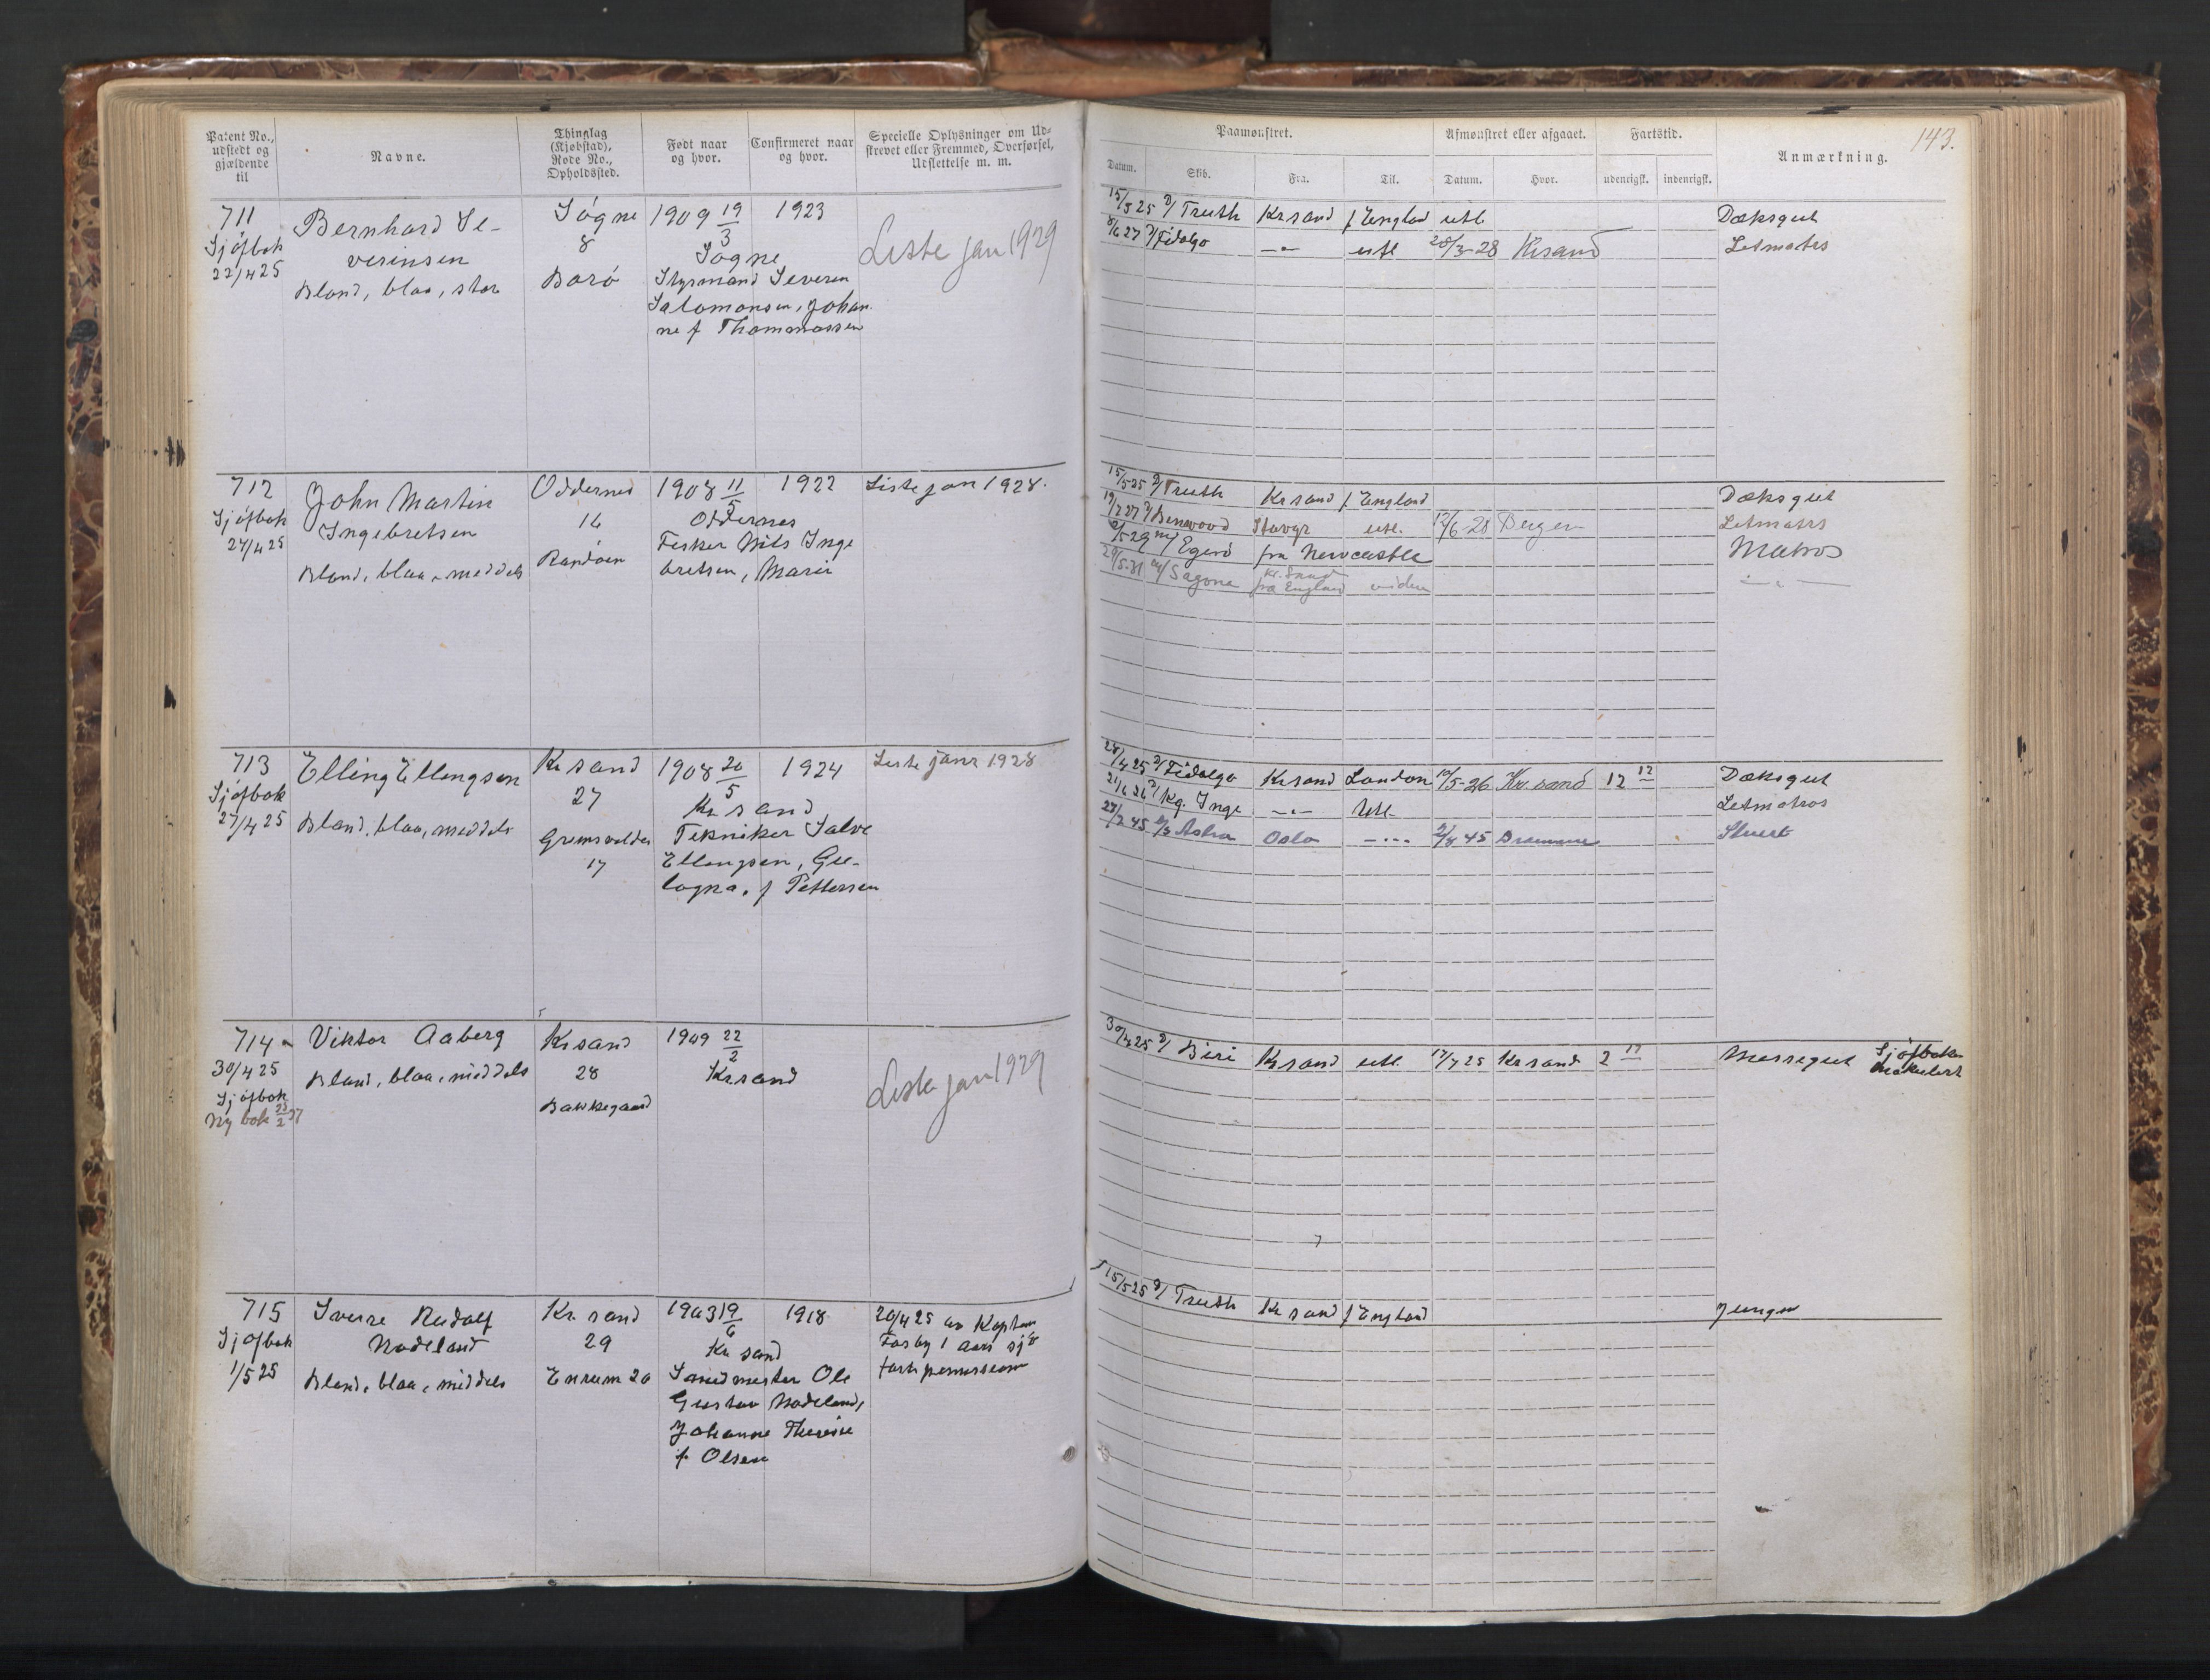 Patent No., udstedt og gjældende til
Navne.
Thinglag (Kjøbstad), Rode No., Opholdssted.
Født naar og hvor.
Confirmeret naar og hvor.
Specielle Oplysninger om Udskrevet eller Fremmed, Overførsel, Udslettelse m. m.
711
Sjøfbok
22/4 25
Bernhard Se-
verinsen
Blond, blaa, stor
Søgne
8
Borø
1909 19/3
Søgne
Styrmand Severin
Salomonsen, Johan
ne f Thommassen
1923
Liste jan 1929
712
Sjøfbok
24/4 25
John Martin
Ingebretsen
Blond, blaa, meddels
Oddernes
16
Randøen
1908 11/5
Oddernes
Fisker Nils Inge
bretsen, Marie
1922
Liste jan 1928.
713
Sjøfbok
27/4 25
Elling Ellingsen
Blond, blaa, meddels
Kr sand
27
17
1908 20/5
Kr sand
Tekniker Salve
Ellingsen,
f Pettersen
1924
Liste janr 1928
714
30/4 25
Sjøfbok
Ny bok 23/2 37
Viktor Aaberg
Blond, blaa, middels
Kr sand
28
Bakkegaard
1909 22/2
Kr sand
Liste jan 1929
715
Sjøfbok
1/5 25
Sverre Rudolf
Nodeland
Blond, blaa, middels
Kr. sand
29
Enrum 20
1903 19/6
Kr sand
Smedmester Ole
Gustav Nodeland,
Johanne Therese
f. Olsen
1918
20/4 25 av Kaptein
Fosby 1 aars sjø
143.
Paamønstret.
Afmønstret eller afgaaet.
Fartstid.
Anmærkning.
Datum.
Skib.
Fra.
Til.
Datum.
Hvor.
udenrigsk.
indenrigsk.
15/5 25 D/ Truth Kr sand f England utl Dæksgut
8/6 27 D/ Fidelgo — " — utl 28/3-28 Krsand Letmatros
15/5 25 D/ Truth Kr sand f. England Dæksgut
19/7 27 D/ Benwood Stavgr utl. 12/6-28 Bergen Letmatros
/5 29 m/ Egerø fra Newcastle Matros
29/5-31 m/ Sagone Kr. Sand
fra England viden — " —
28/4 25 D/ Fidelgo Kr sand London 10/5-26 Kr. sand 12 12 Dæksgut
21/6 26 D/ Kg. Inge — " — Utl. Letmatros
27/2 45 D/S Astra Oslo — " — 2/8 45 Drammen Stuert
30/4 25 D/ Biri Kr sand utl. 17/7 25 Kr sand 2 17 Messegut Sjøfboken
makulert
15/5 25 D/ Truth Kr sand f England Jungm